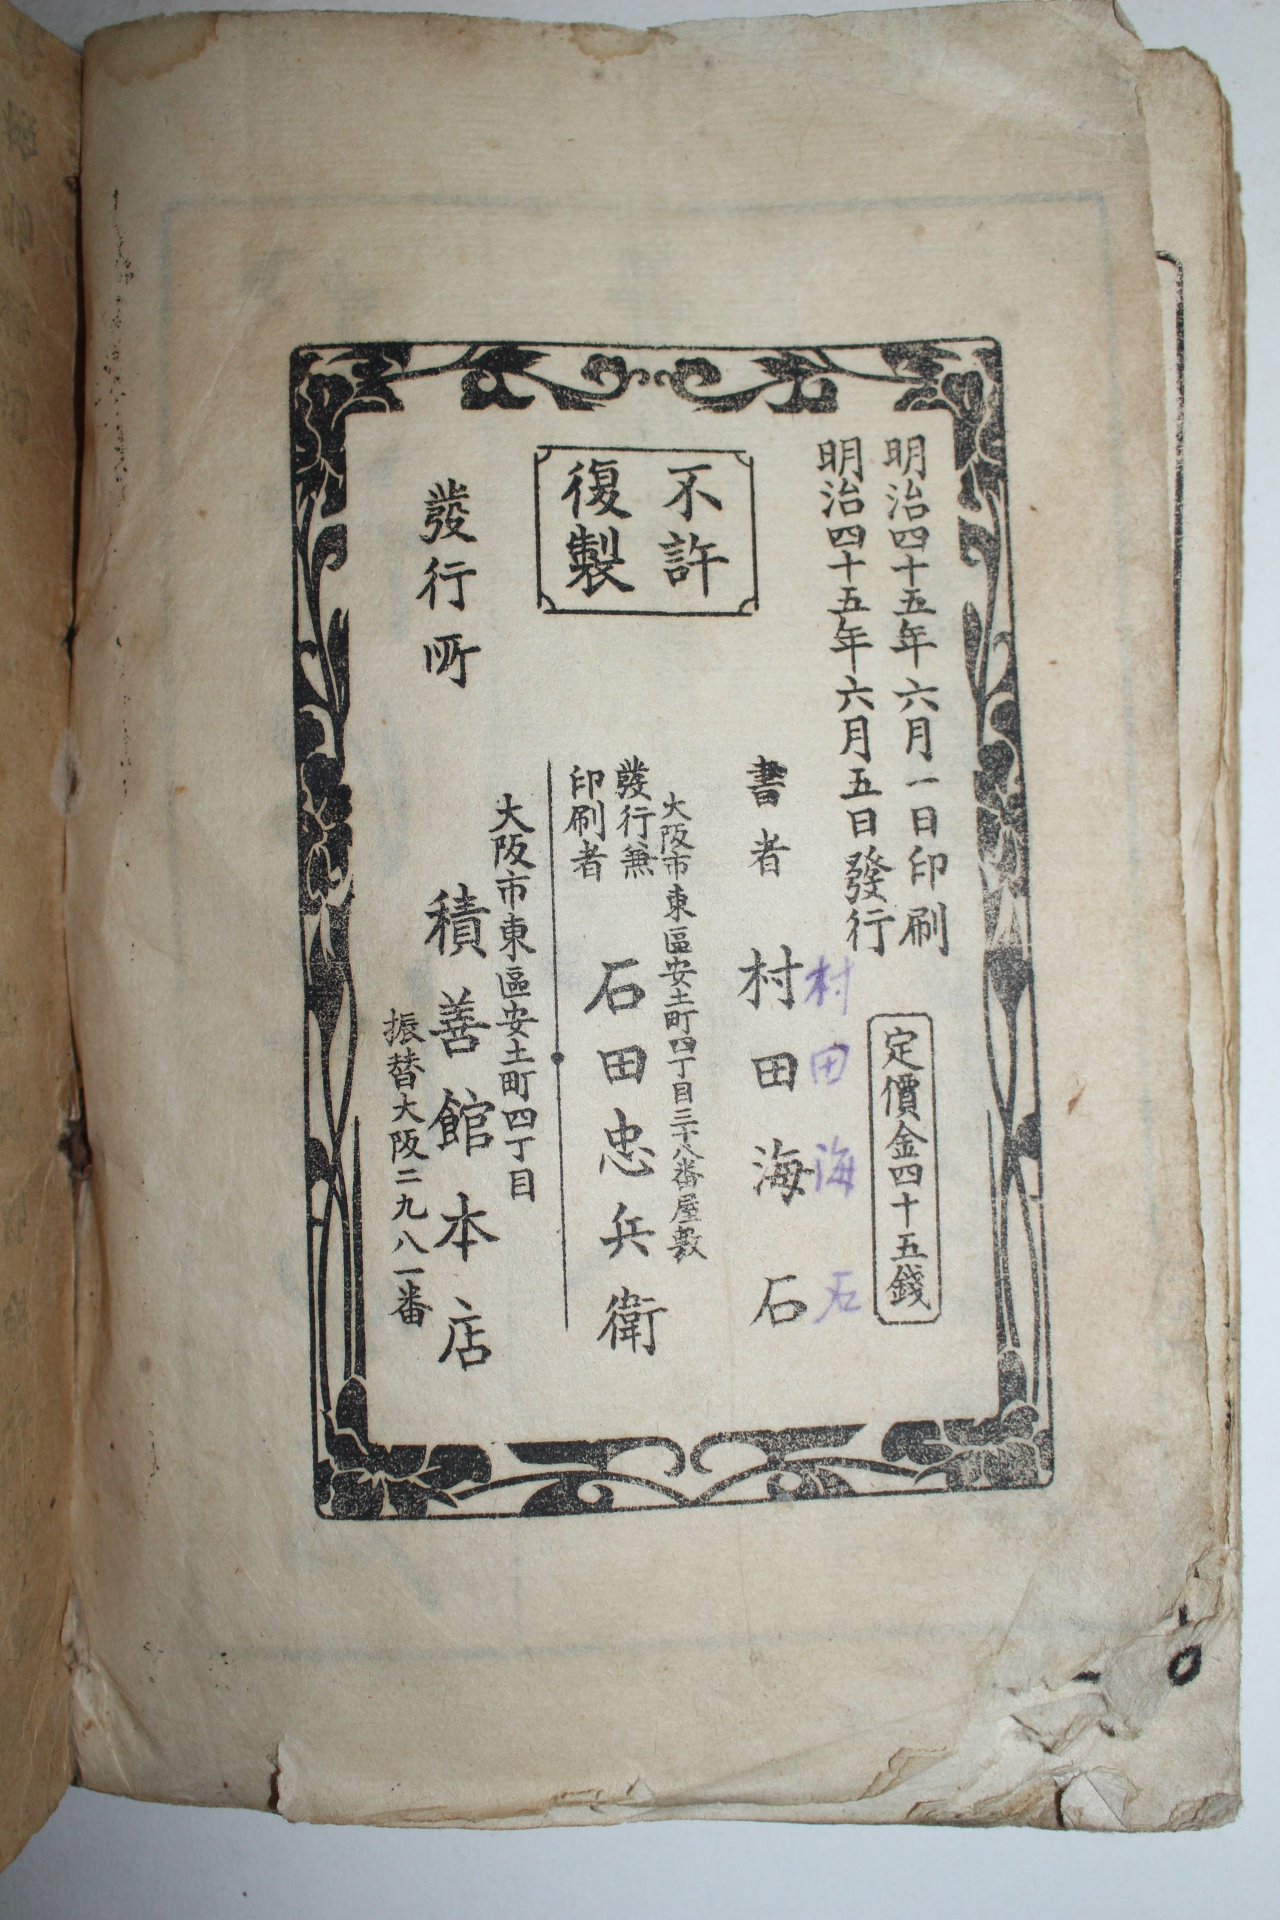 明治四十五年六月一日印刷
明治四十五年六月五日發行
定價金四十五錢
不許
復製
村田海石
書者 村田海石
大阪市東區安土町四丁目三十八番屋敷
發行兼
印刷者 石田忠兵衛
大阪市東區安土町四丁目
發行所 積善館本店
振替大阪二九八一番